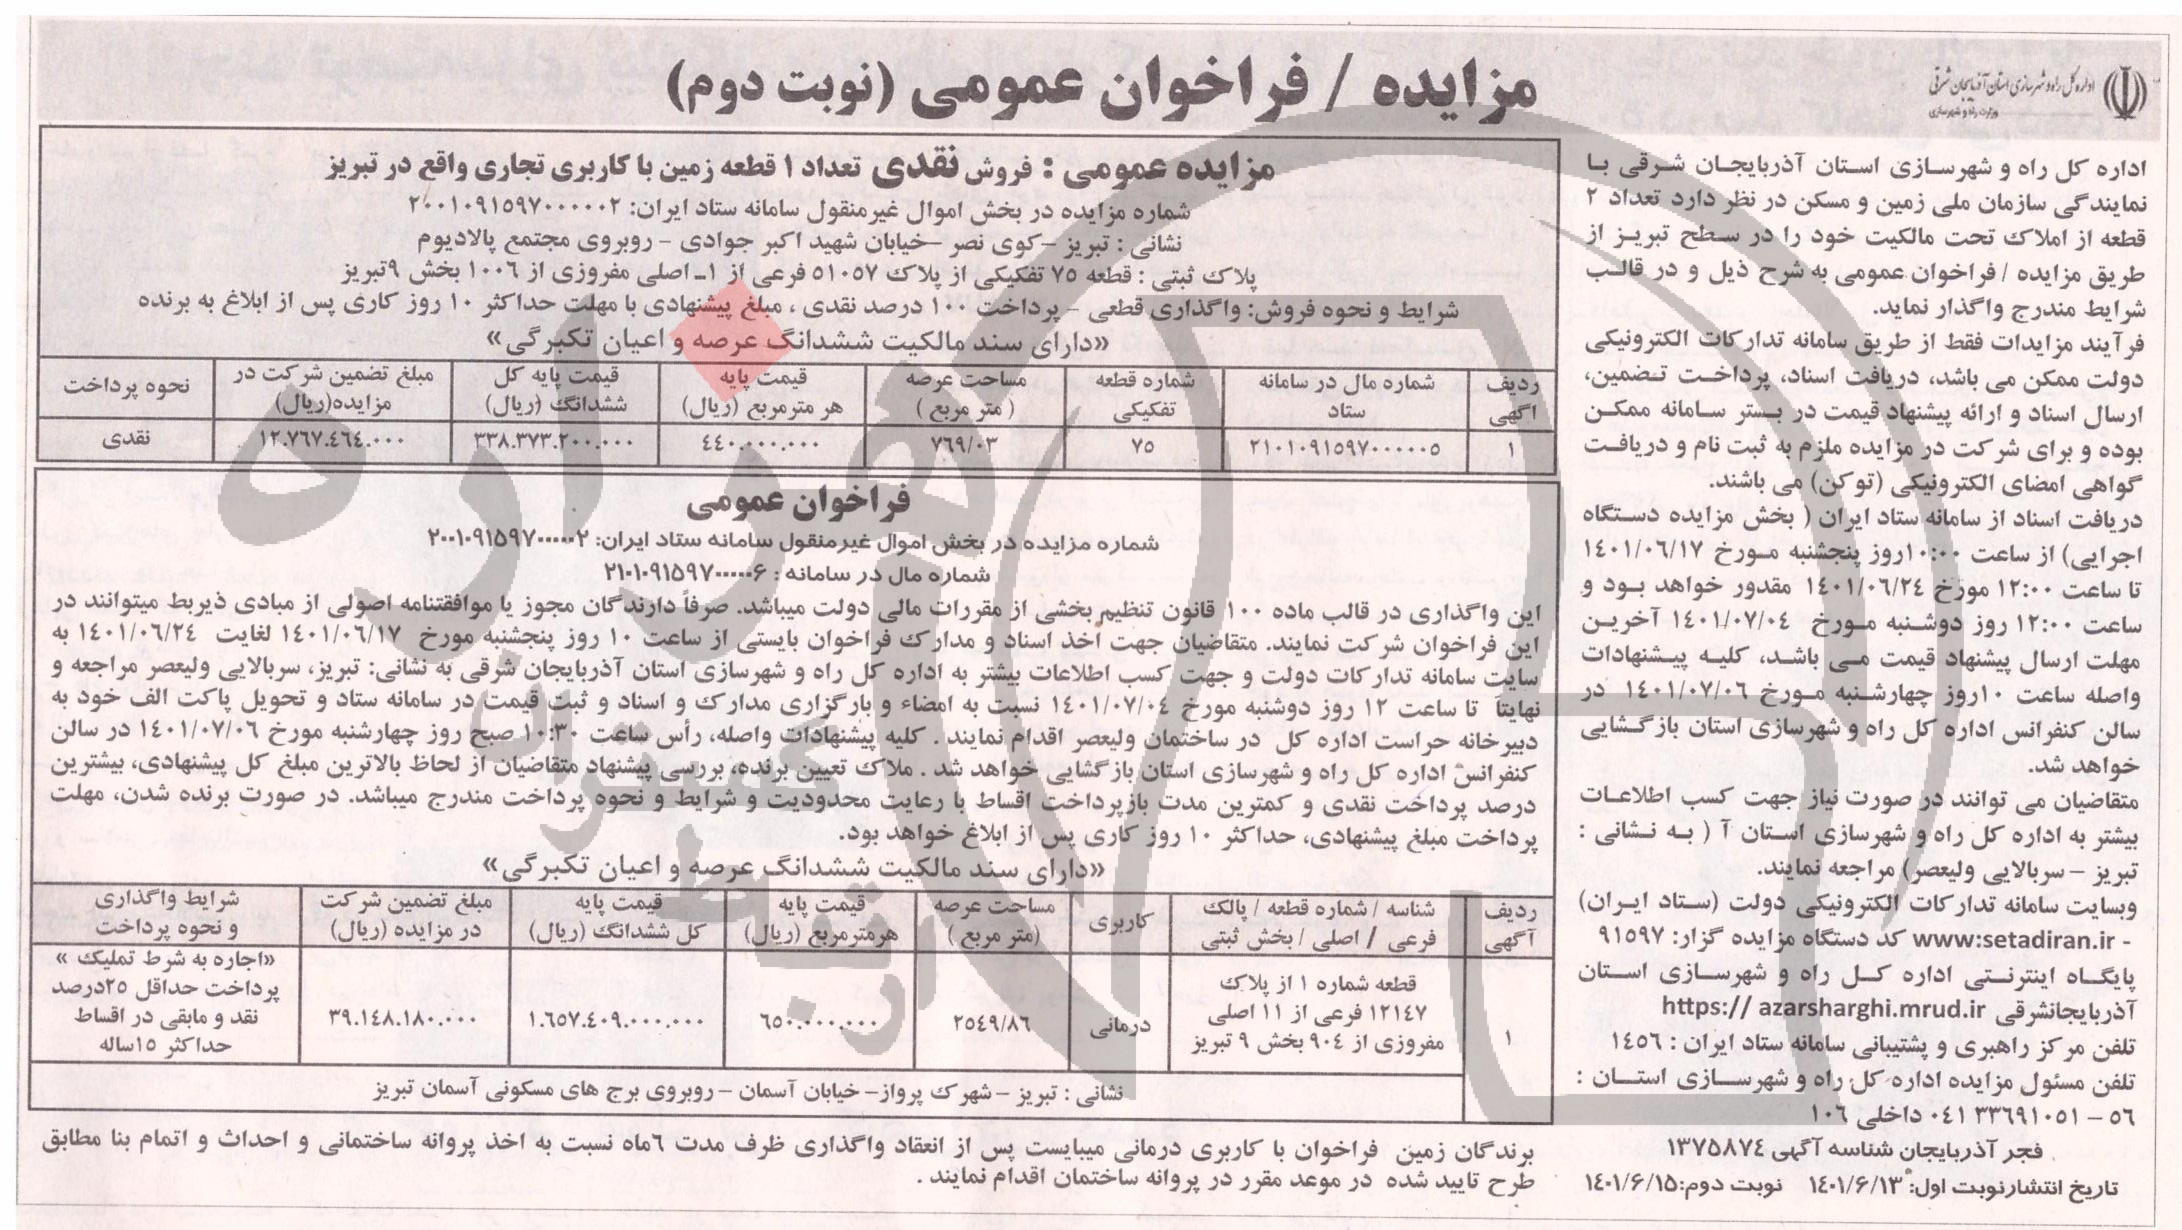 مزایده / فراخوان عمومی (نوبت دوم)
اداره کل راه و شهرسازی استان آذربایجان شرقی
وزارت راه و شهرسازی
اداره کل راه و شهرسازی استان آذربایجان شرقی با
نمایندگی سازمان ملی زمین و مسکن در نظر دارد تعداد ۲
قطعه از املاک تحت مالکیت خود را در سطح تبریز از
طریق مزایده / فراخوان عمومی به شرح ذیل و در قالب
شرایط مندرج واگذار نماید.
فرآیند مزایدات فقط از طریق سامانه تدارکات الکترونیکی
دولت ممکن می باشد، دریافت اسناد، پرداخت تضمین،
ارسال اسناد و ارائه پیشنهاد قیمت در بستر سامانه ممکن
بوده و برای شرکت در مزایده ملزم به ثبت نام و دریافت
گواهی امضای الکترونیکی (توکن) می باشند.
دریافت اسناد از سامانه ستاد ایران ( بخش مزایده دستگاه
اجرایی) از ساعت ۱۰:۰۰روز پنجشنبه مورخ ۱۴۰۱/۰۶/۱۷
تا ساعت ۱۲:۰۰ مورخ ۱۴۰۱/۰۶/۲۴ مقدور خواهد بود و
ساعت ۱۲:۰۰ روز دوشنبه مورخ ۱۴۰۱/۰۷/۰۴ آخرین
مهلت ارسال پیشنهاد قیمت می باشد، کلیه پیشنهادات
واصله ساعت ۱۰روز چهارشنبه مورخ ۱۴۰۱/۰۷/۰۶ در
سالن کنفرانس اداره کل راه و شهرسازی استان بازگشایی
خواهد شد.
متقاضیان می توانند در صورت نیاز جهت کسب اطلاعات
بیشتر به اداره کل راه و شهرسازی استان آ ( به نشانی :
تبریز - سربالایی ولیعصر) مراجعه نمایند.
وبسایت سامانه تدارکات الکترونیکی دولت (ستاد ایران)
www:setadiran.ir - کد دستگاه مزایده گزار: ۹۱۵۹۷
پایگاه اینترنتی اداره کل راه و شهرسازی استان
آذربایجانشرقی https:// azarsharghi.mrud.ir
تلفن مرکز راهبری و پشتیبانی سامانه ستاد ایران : ۱۴۵۶
تلفن مسئول مزایده اداره کل راه و شهرسازی استان :
۵۶ - ۰۴۱۳۳۶۹۱۰۵۱ داخلی ۱۰۶
فجر آذربایجان شناسه آگهی ۱۳۷۵۸۷۴
تاریخ انتشارنوبت اول: ۱۴۰۱/۶/۱۳ نوبت دوم:۱۴۰۱/۶/۱۵
مزایده عمومی : فروش نقدی تعداد ۱ قطعه زمین با کاربری تجاری واقع در تبریز
شماره مزایده در بخش اموال غیرمنقول سامانه ستاد ایران: ۲۰۰۱۰۹۱۵۹۷۰۰۰۰۰۲
نشانی : تبریز -کوی نصر -خیابان شهید اکبر جوادی - روبروی مجتمع پالادیوم
پلاک ثبتی : قطعه ۷۵ تفکیکی از پلاک ۵۱۰۵۷ فرعی از ۱- اصلی مفروزی از ۱۰۰۶ بخش ۹تبریز
شرایط و نحوه فروش: واگذاری قطعی - پرداخت ۱۰۰ درصد نقدی ، مبلغ پیشنهادی با مهلت حداکثر ۱۰ روز کاری پس از ابلاغ به برنده
«دارای سند مالکیت ششدانگ عرصه و اعیان تکبرگی»
ردیف آگهی | شماره مال در سامانه ستاد | شماره قطعه تفکیکی | مساحت عرصه ( متر مربع ) | قیمت پایه هر مترمربع (ریال) | قیمت پایه کل ششدانگ (ریال) | مبلغ تضمین شرکت در مزایده(ریال) | نحوه پرداخت
۱ | ۲۱۰۱۰۹۱۵۹۷۰۰۰۰۰۵ | ۷۵ | ۷۶۹/۰۳ | ۴۴۰.۰۰۰.۰۰۰ | ۳۳۸.۳۷۳.۲۰۰.۰۰۰ | ۱۲.۷۶۷.۴۶۴.۰۰۰ | نقدی
فراخوان عمومی
شماره مزایده در بخش اموال غیرمنقول سامانه ستاد ایران: ۲۰۰۱۰۹۱۵۹۷۰۰۰۰۰۲
شماره مال در سامانه : ۲۱۰۱۰۹۱۵۹۷۰۰۰۰۰۶
این واگذاری در قالب ماده ۱۰۰ قانون تنظیم بخشی از مقررات مالی دولت میباشد. صرفاً دارندگان مجوز یا موافقتنامه اصولی از مبادی ذیربط میتوانند در
این فراخوان شرکت نمایند. متقاضیان جهت اخذ اسناد و مدارک فراخوان بایستی از ساعت ۱۰ روز پنجشنبه مورخ ۱۴۰۱/۰۶/۱۷ لغایت ۱۴۰۱/۰۶/۲۴ به
سایت سامانه تدارکات دولت و جهت کسب اطلاعات بیشتر به اداره کل راه و شهرسازی استان آذربایجان شرقی به نشانی: تبریز، سربالایی ولیعصر مراجعه و
نهایتاً تا ساعت ۱۲ روز دوشنبه مورخ ۱۴۰۱/۰۷/۰۴ نسبت به امضاء و بارگزاری مدارک و اسناد و ثبت قیمت در سامانه ستاد و تحویل پاکت الف خود به
دبیرخانه حراست اداره کل در ساختمان ولیعصر اقدام نمایند . کلیه پیشنهادات واصله، رأس ساعت ۱۰:۳۰ صبح روز چهارشنبه مورخ ۱۴۰۱/۰۷/۰۶ در سالن
کنفرانس اداره کل راه و شهرسازی استان بازگشایی خواهد شد . ملاک تعیین برنده، بررسی پیشنهاد متقاضیان از لحاظ بالاترین مبلغ کل پیشنهادی، بیشترین
درصد پرداخت نقدی و کمترین مدت بازپرداخت اقساط با رعایت محدودیت و شرایط و نحوه پرداخت مندرج میباشد. در صورت برنده شدن، مهلت
پرداخت مبلغ پیشنهادی، حداکثر ۱۰ روز کاری پس از ابلاغ خواهد بود.
«دارای سند مالکیت ششدانگ عرصه و اعیان تکبرگی»
ردیف آگهی | شناسه / شماره قطعه / پالک فرعی / اصلی / بخش ثبتی | کاربری | مساحت عرصه (متر مربع ) | قیمت پایه هرمترمربع (ریال) | قیمت پایه کل ششدانگ (ریال) | مبلغ تضمین شرکت در مزایده (ریال) | شرایط واگذاری و نحوه پرداخت
۱ | قطعه شماره ۱ از پلاک ۱۲۱۴۷ فرعی از ۱۱ اصلی مفروزی از ۹۰۴ بخش ۹ تبریز | درمانی | ۲۵۴۹/۸۶ | ۶۵۰.۰۰۰.۰۰۰ | ۱.۶۵۷.۴۰۹.۰۰۰.۰۰۰ | ۳۹.۱۴۸.۱۸۰.۰۰۰ | «اجاره به شرط تملیک » پرداخت حداقل ۲۵درصد نقد و مابقی در اقساط حداکثر ۱۵ساله
نشانی : تبریز - شهرک پرواز- خیابان آسمان - روبروی برج های مسکونی آسمان تبریز
برندگان زمین فراخوان با کاربری درمانی میبایست پس از انعقاد واگذاری ظرف مدت ۶ماه نسبت به اخذ پروانه ساختمانی و احداث و اتمام بنا مطابق
طرح تایید شده در موعد مقرر در پروانه ساختمان اقدام نمایند .